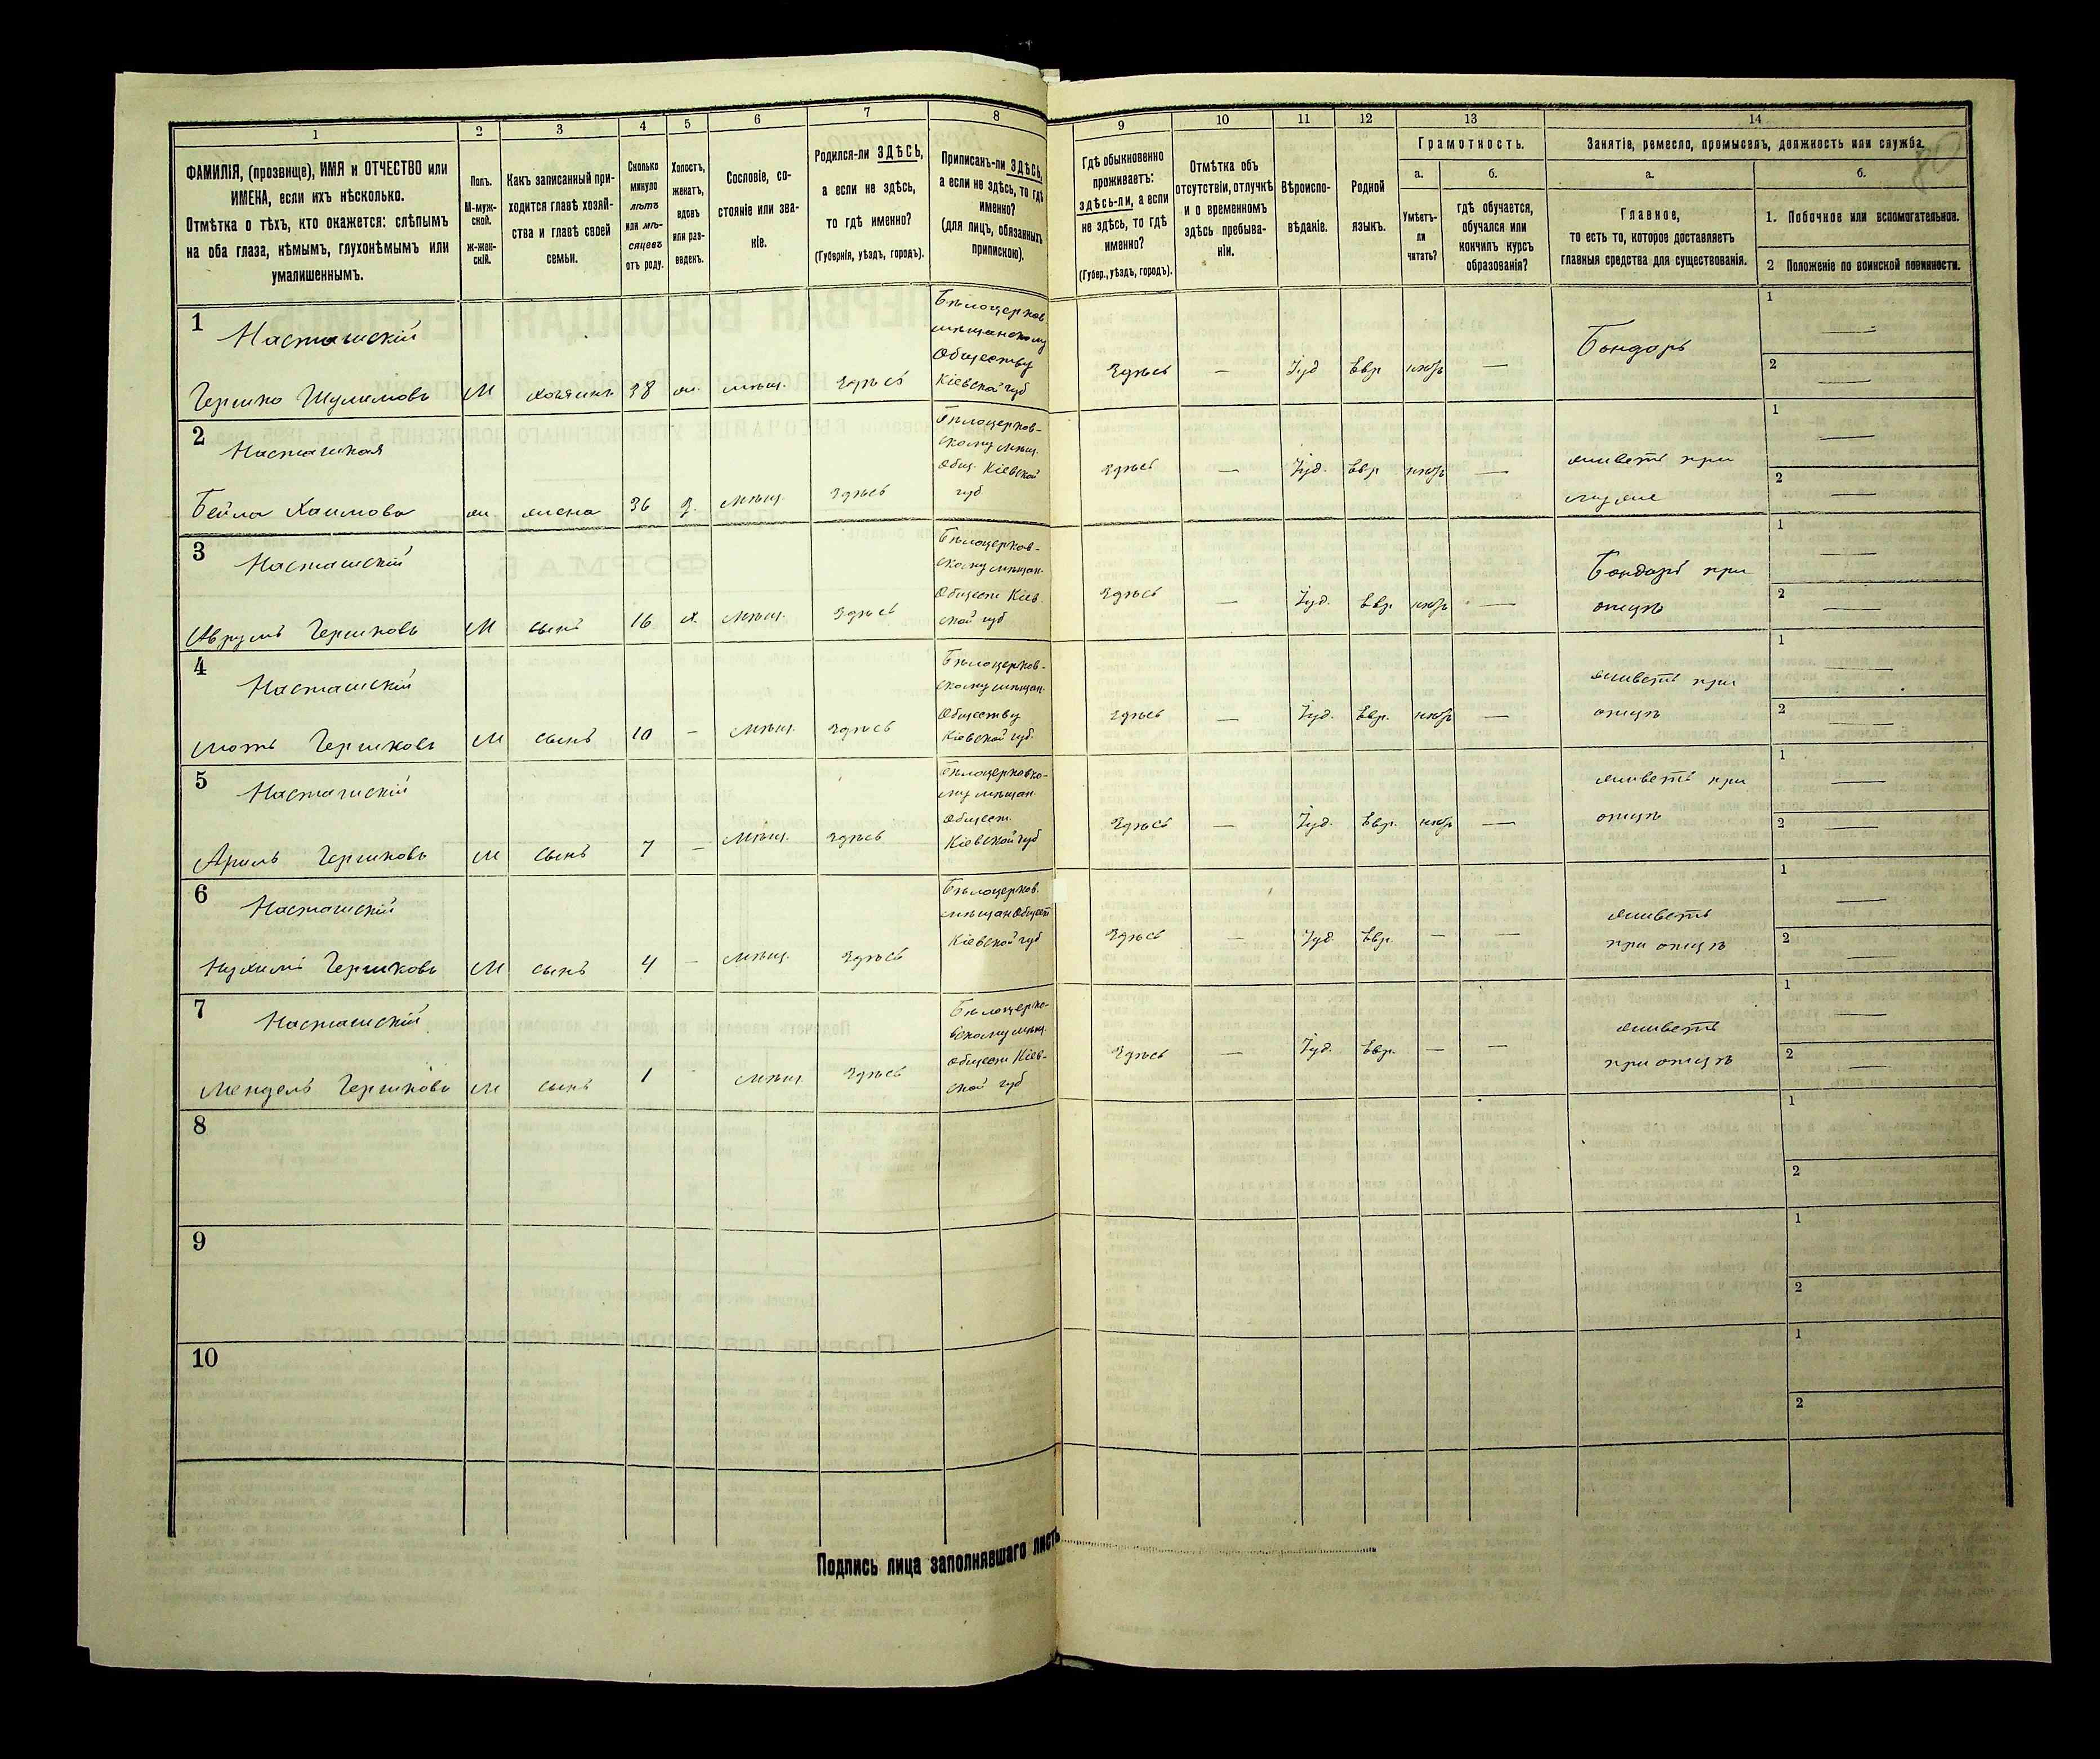 1 2 3 4 5 6 7 8 9 10 11 12 13 14
ФАМИЛІЯ, (прозвище), ИМЯ и ОТЧЕСТВО или
ИМЕНА, если ихъ нѣсколько.
Отмѣтка о тѣхъ, кто окажется: слѣпымъ
на оба глаза, нѣмымъ, глухонѣмымъ или
умалишеннымъ.
Полъ.
М-муж-
ской.
ж-жен-
скій.
Какъ записанный при-
ходится главѣ хозяй-
ства и главѣ своей
семьи.
Сколько
минуло
лѣтъ
или мѣ-
сяцевъ
отъ роду.
Холостъ,
женатъ,
вдовъ
или раз-
веденъ.
Сословіе, со-
стояніе или зва-
ніе.
Родился-ли ЗДѢСЬ,
а если не здѣсь,
то гдѣ именно?
(Губернія, уѣздъ, городъ).
Приписанъ-ли ЗДѢСЬ,
а если не здѣсь, то гдѣ
именно?
(для лицъ, обязанныхъ
припискою).
Гдѣ обыкновенно
проживаетъ:
здѣсь-ли, а если
не здѣсь, то гдѣ
именно?
(Губер., уѣздъ, городъ).
Отмѣтка объ
отсутствіи, отлучкѣ
и о временномъ
здѣсь пребыва-
ніи.
Вѣроиспо-
вѣданіе.
Родной
языкъ.
Грамотность.
а.
Умѣетъ-
ли
читать?
б.
гдѣ обучается,
обучался или
кончилъ курсъ
образованія?
Занятіе, ремесло, промыселъ, должность или служба.
а.
Главное,
то есть то, которое доставляетъ
главныя средства для существованія.
б.
1. Побочное или вспомогательное.
2 Положеніе по воинской повинности.
80
1 Насташскій
Гершко Шулимовъ М хозяинъ 38 ж. мѣщ. Здѣсь
Бѣлоцерков.
мѣщанскому
Обществу
Кіевской губ
Здѣсь — Іуд Евр —
Бондарь
1 —
2 —
2 Насташская
Бейла Хаимова ж жена 36 з. мѣщ. Здѣсь
Бѣлоцерков-
скому мѣщ.
Общ. Кіевской
губ.
Здѣсь — Іуд. Евр —
живетъ при
мужѣ
1 —
2 —
3 Насташскій
Аврумъ Гершковъ М сынъ 16 х. мѣщ. Здѣсь
Бѣлоцерков-
скому мѣщан.
Общест Кіев.
ской губ
Здѣсь — Іуд. Евр. —
Бондарь при
отцѣ
1 —
2 —
4 Насташскій
Мотъ Гершковъ М сынъ 10 — мѣщ. Здѣсь
Бѣлоцерков-
скому мѣщан.
Обществу
Кіевской губ.
Здѣсь — Іуд. Евр. —
живетъ при
отцѣ
1 —
2 —
5 Насташскій
Гершковъ М сынъ 7 — мѣщ. Здѣсь
Бѣлоцерковско-
му мѣщан.
Общест.
Кіевской губ
Здѣсь — Іуд. Евр. —
живетъ при
отцѣ
1 —
2 —
6 Насташскій
Нухимъ Гершковъ М сынъ 4 — мѣщ. Здѣсь
Бѣлоцерков.
мѣщан Общест
Кіевской губ
Здѣсь — Іуд. Евр. — —
живетъ
при отцѣ
1 —
2 —
7 Насташскій
Мендель Гершковъ М сынъ 1 - мѣщ Здѣсь
Бѣлоцерко-
вскому мѣщ.
общест Кіев-
ской губ
Здѣсь — Іуд. Евр. — —
живетъ
при отцѣ
1 —
2 —
8
1
2
9
1
2
10
1
2
Подпись лица заполнявшаго листъ